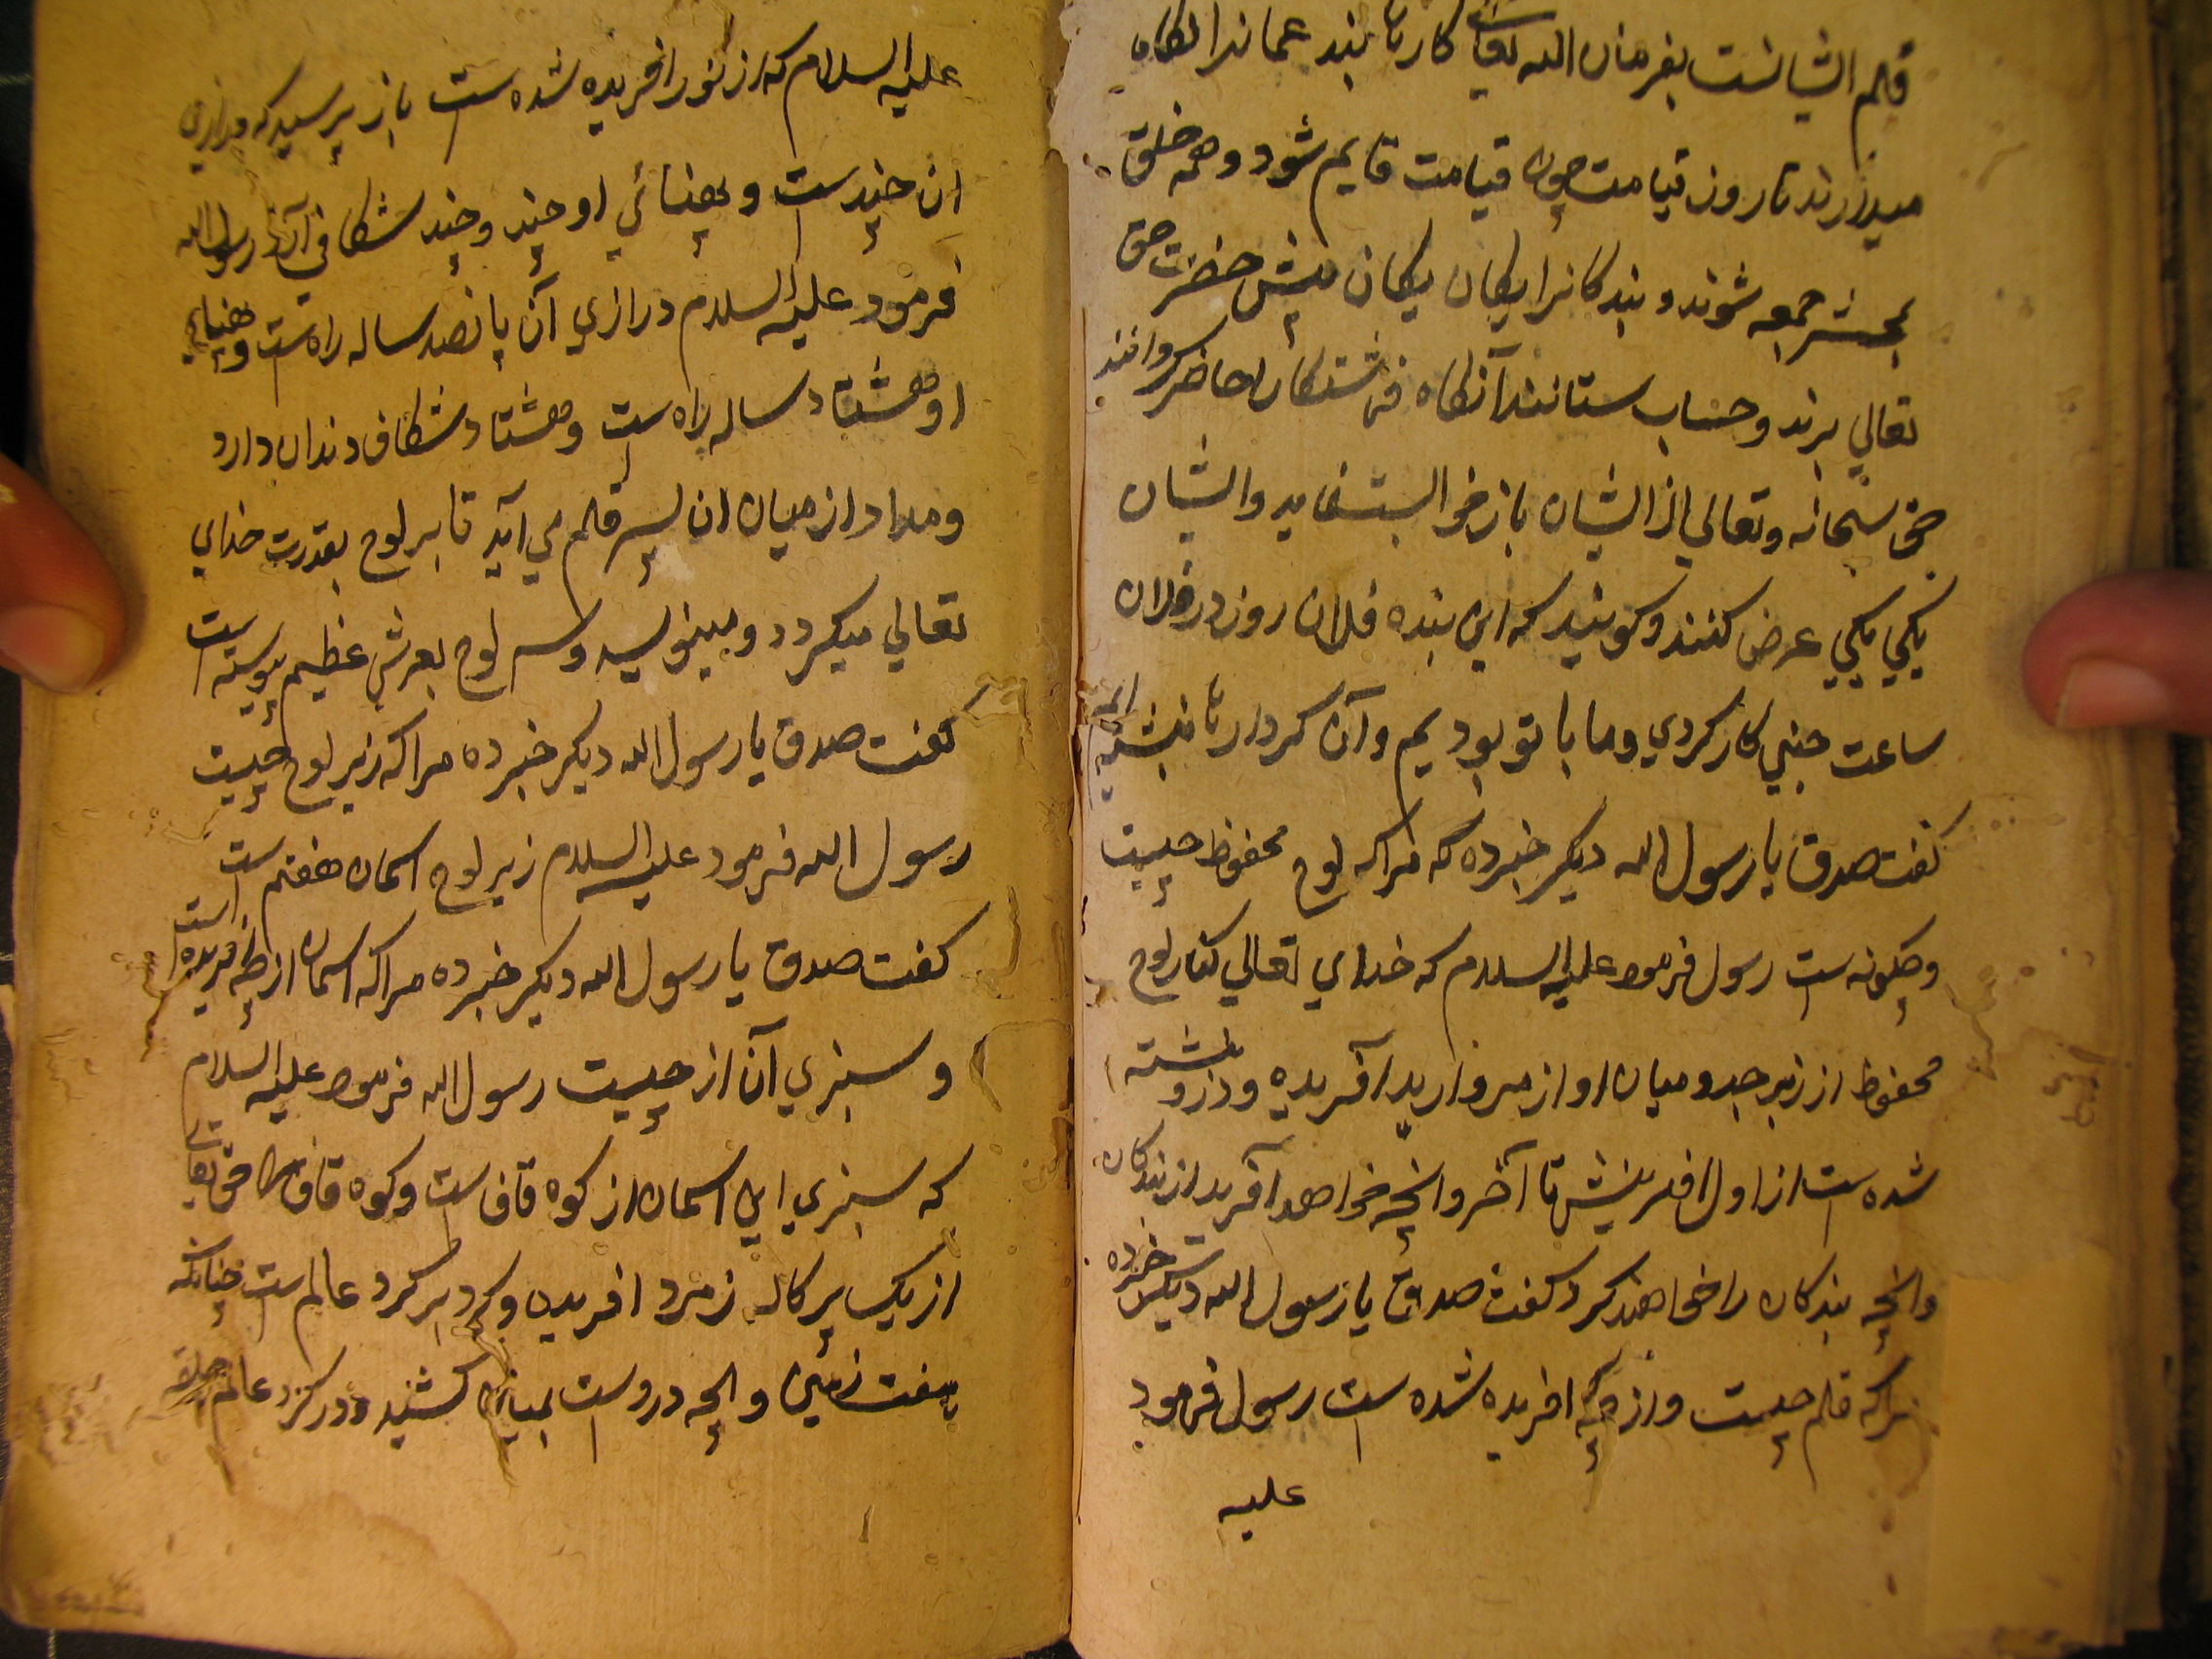 قلم ایشانست بفرمان الله تعالی کارنا بند عما ندا نکاه
میدارند تا روز قیامت چون قیامت قایم شود و همه خلق
بحشر جمعه شوند و بندکانرا یکان یکان پیش حضرت حق
تعالي برند و حساب ستانند آنکاه فرشتکان را حاضر کردانند
حق سبحانه وتعالي از ایشان باز خواست نماید وایشان
یکي یکي عرض کنند و کویند که این بنده فلان روز در فلان
ساعت چنین کار کردي وما با تو بودیم و آن کردارنا نبشتیم
کفت صدق یا رسول الله دیکر خبر ده که مراکه لوح محفوظ چیست
وچکونه است رسول فرمود علیه السلام که خداي تعالي کنار لوح
محفوظ از زبرجد و میان او از مروارید آفریده ودرو نبشته
شده است از اول افرینش تا آخر وانچه خواهد آفرید از بندکان
وانچه بندکان را خواهند کرد کفت صدق یا رسول الله دیکر خبر ده
مراکه قلم چیست واز چه افریده شده است رسول فرمود
علیه
علیه السلام که از نور افریده شده است باز پرسید که درازي
ان چند است و پهنائي او چند و چند شکاف دارد رسول الله
فرمود علیه السلام درازي آن پانصد ساله راه است و پهنائي
او هشتاد ساله راه است و هشتاد شکاف دندان دارد
و مداد از میان ان بسر قلم مي آید تا بر لوح بقدرت خداي
تعالي میکردد و مینویسد و سر لوح بعرش عظیم پیوسته است
کفت صدق یا رسول الله دیکر خبر ده مراکه زیر لوح چیست
رسول الله فرمود علیه السلام زیر لوح اسمان هفتم است
کفت صدق یا رسول الله دیکر خبر ده مراکه اسمان از چه افریده است
و سبزي آن از چیست رسول الله فرمود علیه السلام
که سبزي این اسمان از کوه قاف است و کوه قاف را حق تعالی
از یک پرکاله زمرد افریده و کرد بر کرد عالم است چنانکه
هفت زمین وانچه دروست بمیان کشیده و در کرد عالم حلقه